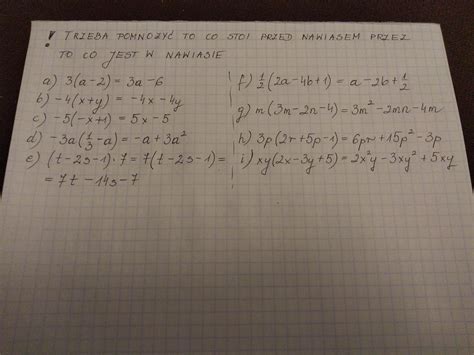 ! TRZEBA POMNOŻYĆ TO CO STOI PRZED NAWIASEM PRZEZ
TO CO JEST W NAWIASIE
a) 3(a-2) = 3a-6
b) -4(x+y) = -4x-4y
c) -5(-x+1) = 5x-5
d) -3a(1/3-a) = -a+3a²
e) (t-2s-1)·7 = 7(t-2s-1) =
= 7t-14s-7
f) 1/2(2a-4b+1) = a-2b+1/2
g) m(3m-2n-4) = 3m²-2mn-4m
h) 3p(2r+5p-1) = 6pr+15p²-3p
i) xy(2x-3y+5) = 2x²y-3xy²+5xy